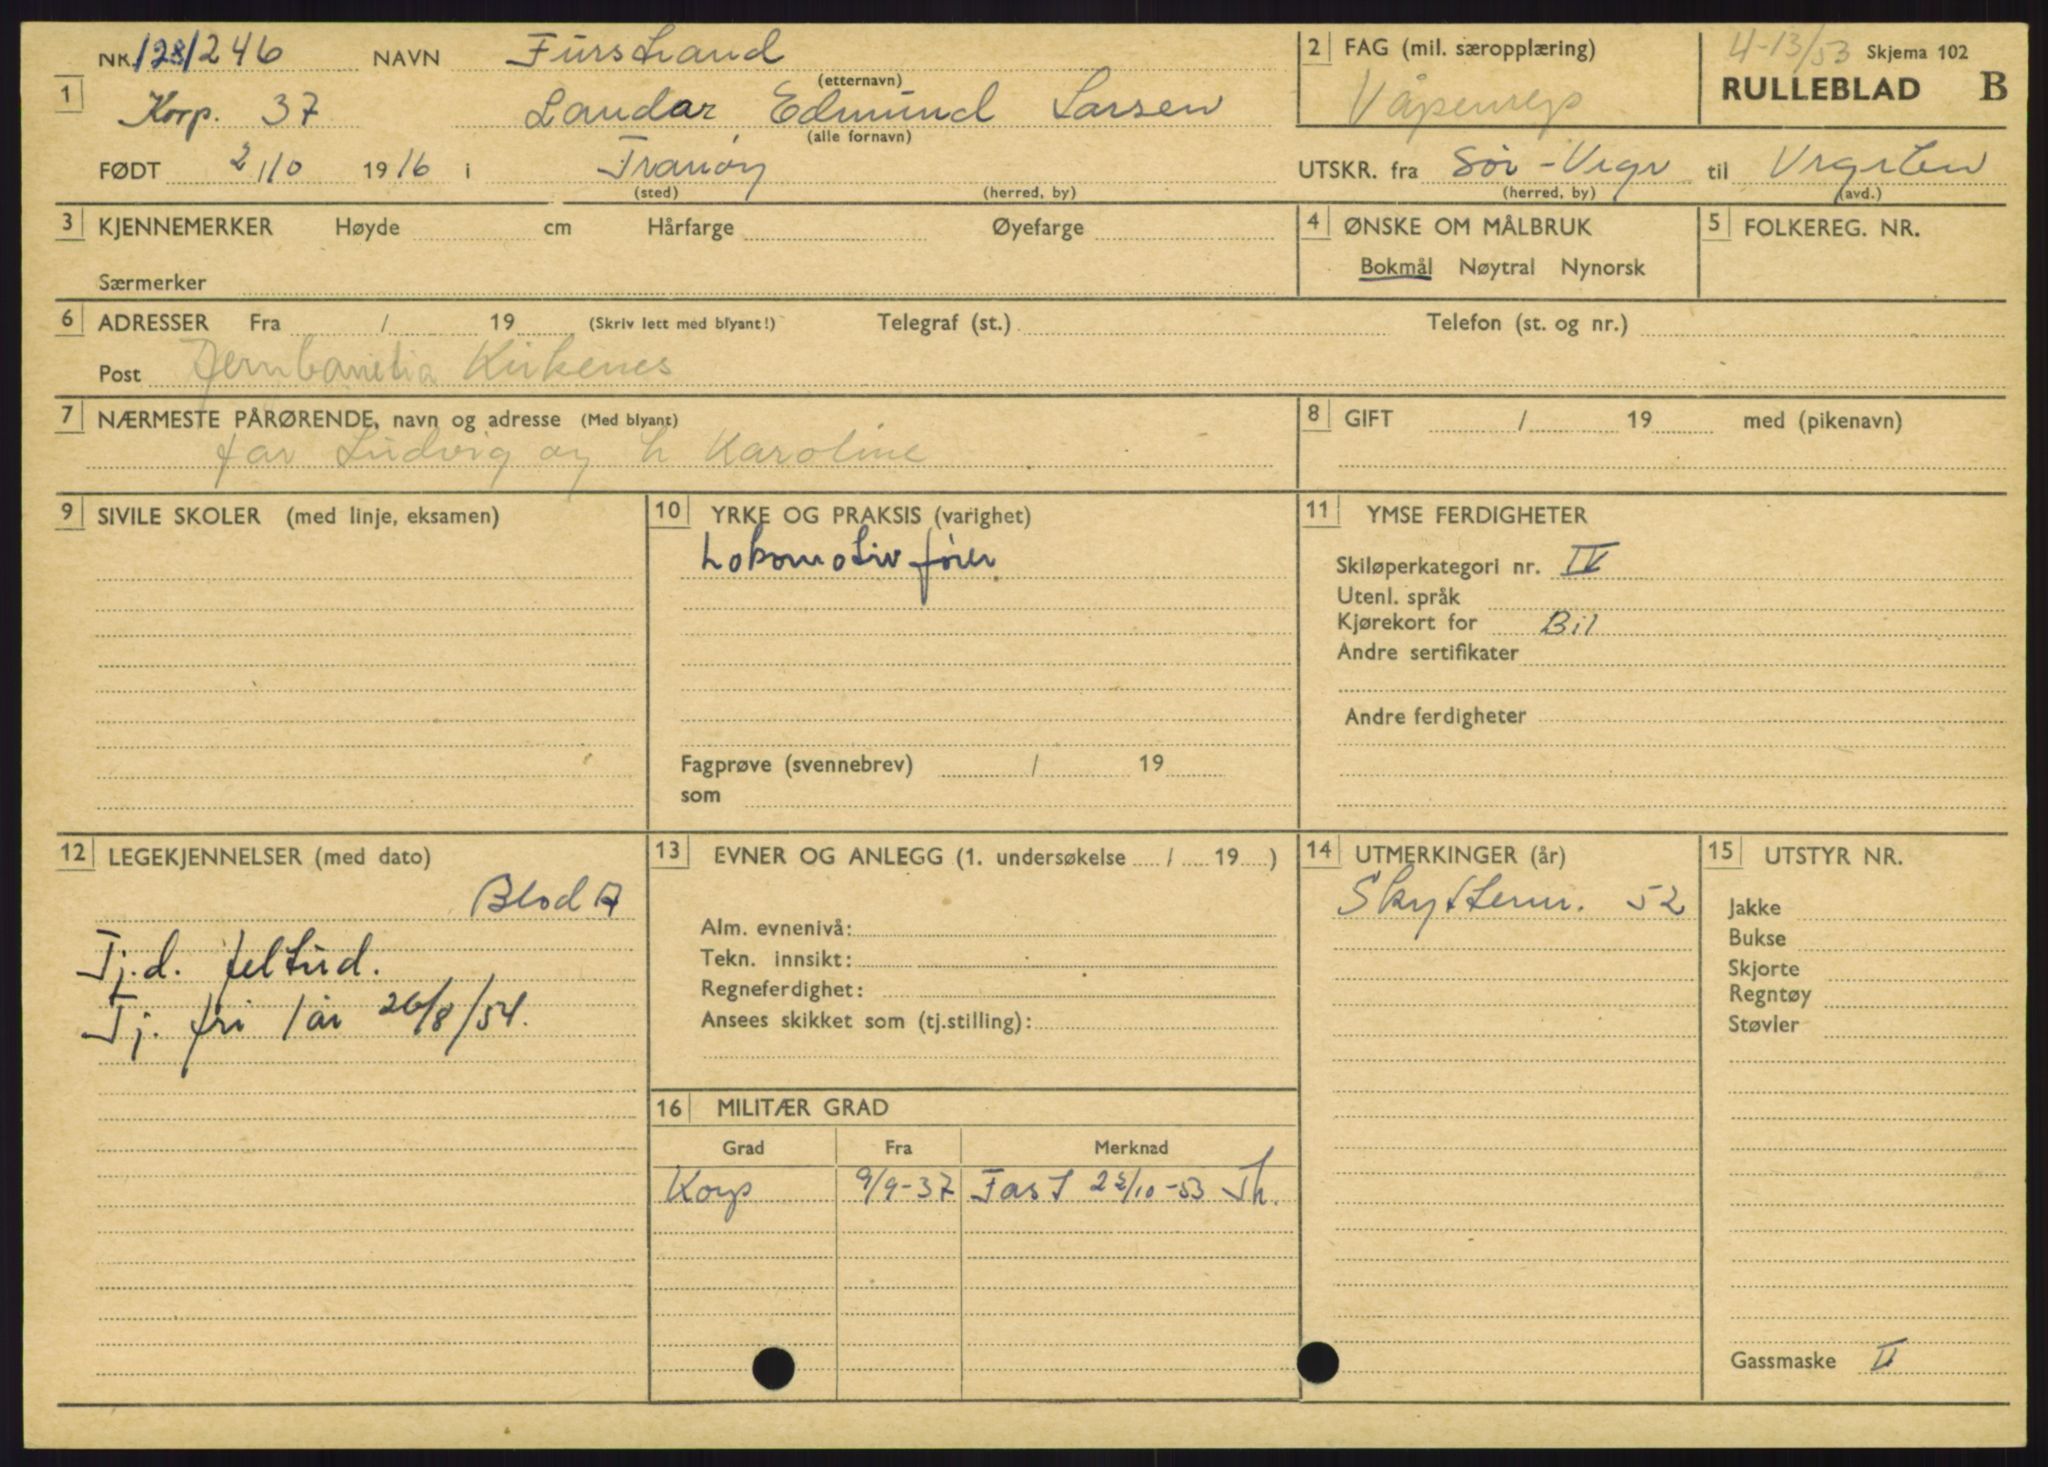 NR. 128/246 NAVN Furstrand 2 FAG (mil. særopplæring) 4-13/53 Skjema 102
(etternavn)
1 Korp. 37 Landar Edmund Larsen Våpenrep RULLEBLAD B
(alle fornavn)
FØDT 2/10 1916 i Tranøy UTSKR. fra Sør-Vrgr til
(sted) (herred, by) (herred, by) (avd.)
3 KJENNEMERKER Høyde cm Hårfarge Øyefarge 4 ØNSKE OM MÅLBRUK 5 FOLKEREG. NR.
Særmerker Bokmål Nøytral Nynorsk
6 ADRESSER Fra / 19 (Skriv lett med blyant!) Telegraf (st.) Telefon (st. og nr.)
Post Kirkenes
7 NÆRMESTE PÅRØRENDE, navn og adresse (Med blyant) 8 GIFT / 19 med (pikenavn)
far Ludvig og h Karoline
9 SIVILE SKOLER (med linje, eksamen) 10 YRKE OG PRAKSIS (varighet) 11 YMSE FERDIGHETER
Lokomotivfører
Skiløperkategori nr. IV
Utenl. språk
Kjørekort for Bil
Andre sertifikater
Andre ferdigheter
Fagprøve (svennebrev) / 19
som
12 LEGEKJENNELSER (med dato) 13 EVNER OG ANLEGG (1. undersøkelse / 19 ) 14 UTMERKINGER (år) 15 UTSTYR NR.
Blod A Skytterm. 52 Jakke
Tj.d. feltud. Alm. evnenivå: Bukse
Tekn. innsikt: Skjorte
Tj. fri 1 år 26/8/54. Regneferdighet: Regntøy
Ansees skikket som (tj.stilling): Støvler
16 MILITÆR GRAD
Grad Fra Merknad
Korp 9/9-37 Fast 22/10-53 Th.
Gassmaske II